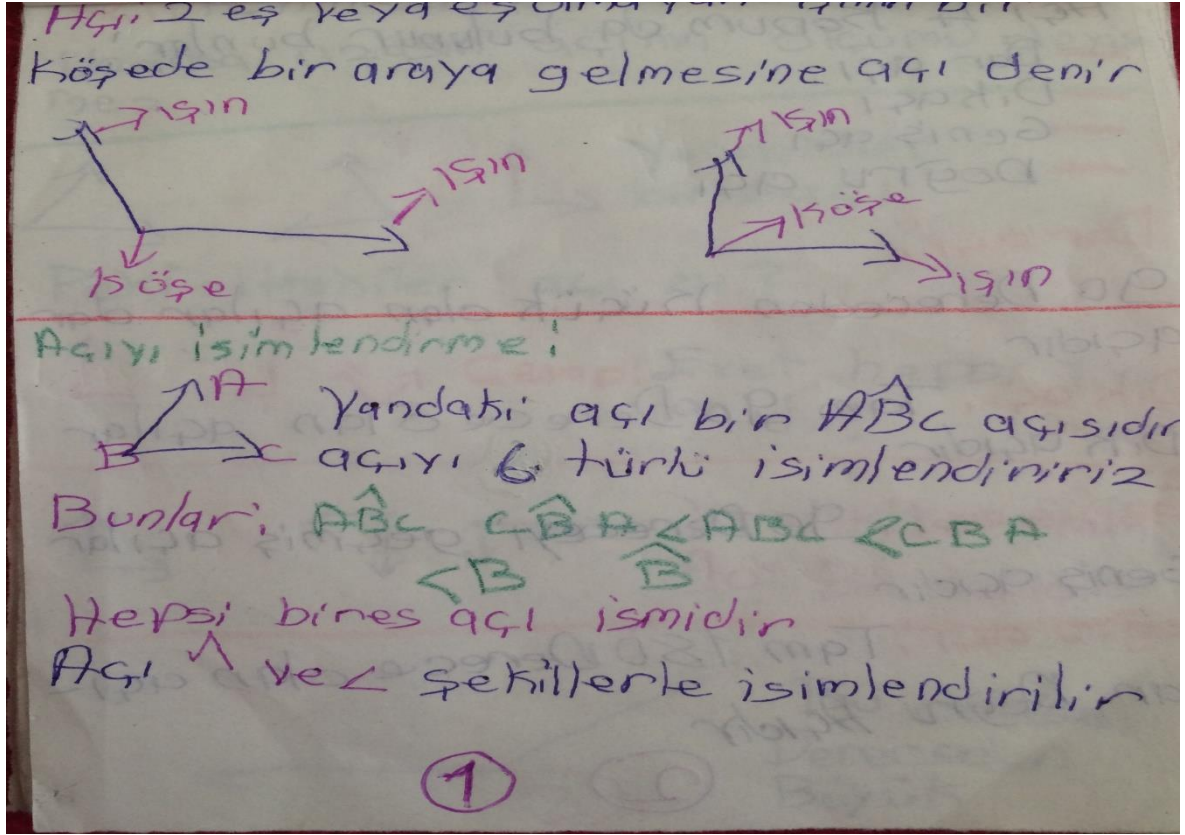 Açı: 2 eş veya eş olmayan ışının bir
Köşede bir araya gelmesine açı denir
ışın
ışın
Köşe
ışın
Köşe
ışın
Açıyı isimlendirme:
A
B
C
Yandaki açı bir AB̂C açısıdır
açıyı 6 türlü isimlendiririz
Bunlar: AB̂C CB̂A <ABC <CBA
<B B̂
Hepsi birnes açı ismidir
Açı ^ ve < şekillerle isimlendirilir
1